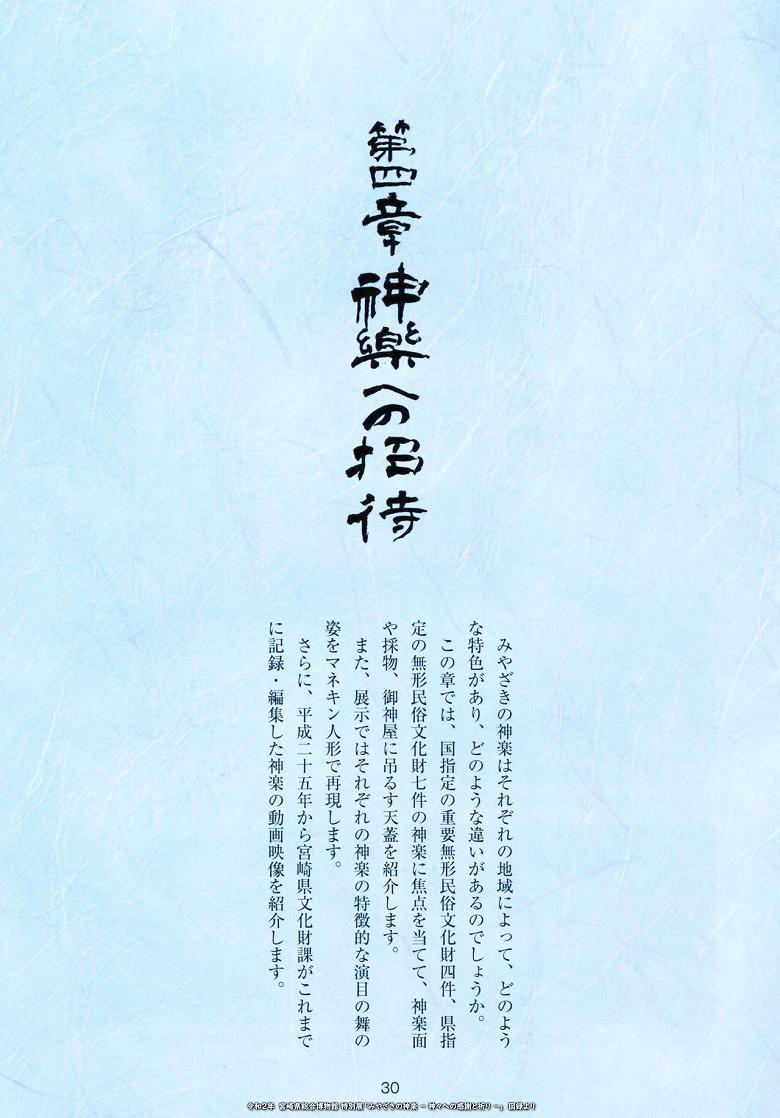 第四章 神樂への招待
みやざきの神楽はそれぞれの地域によって、どのよう
な特色があり、どのような違いがあるのでしょうか。
この章では、国指定の重要無形民俗文化財四件、県指
定の無形民俗文化財七件の神楽に焦点を当てて、神楽面
や採物、御神屋に吊るす天蓋を紹介します。
また、展示ではそれぞれの神楽の特徴的な演目の舞の
姿をマネキン人形で再現します。
さらに、平成二十五年から宮崎県文化財課がこれまで
に記録・編集した神楽の動画映像を紹介します。
30
令和2年 宮崎県総合博物館 特別展「みやざきの神楽 －神々への感謝と祈り－」 図録より